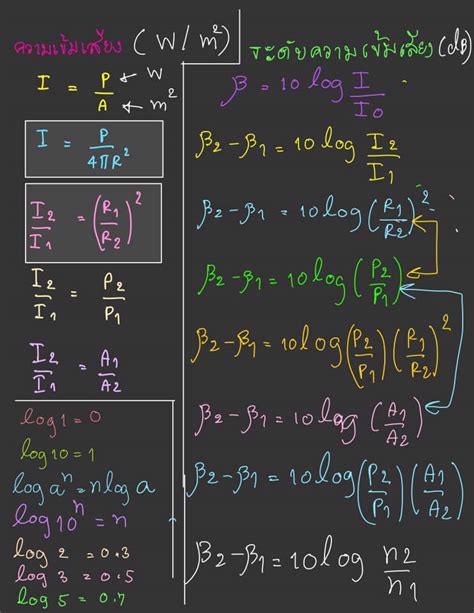 ความเข้มเสียง (W/m²)
I = P/A ← W ← m²
I = P/4πR²
I₂/I₁ = (R₁/R₂)²
I₂/I₁ = P₂/P₁
I₂/I₁ = A₁/A₂
log 1 = 0
log 10 = 1
log aⁿ = n log a
log 10ⁿ = n
log 2 = 0.3
log 3 = 0.5
log 5 = 0.7
ระดับความเข้มเสียง (dB)
β = 10 log I/I₀
β₂-β₁ = 10 log I₂/I₁
β₂-β₁ = 10 log (R₁/R₂)²
β₂-β₁ = 10 log (P₂/P₁)
β₂-β₁ = 10 log (P₂/P₁)(R₁/R₂)²
β₂-β₁ = 10 log (A₁/A₂)
β₂-β₁ = 10 log (P₂/P₁)(A₁/A₂)
β₂-β₁ = 10 log n₂/n₁